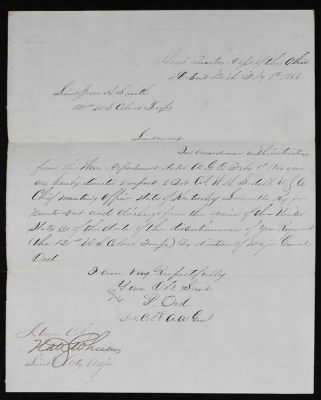 Head Quarters Dept of the Ohio
Detroit Mich Feby 8th 1866
Lieut Jno A Smith
121st U S Colored Troops
Lieutenant
In accordance with instructions
from the War Department dated A.G.O Feby 1st 1866 you
are hereby directed to report to Bvt Col W. H. Sidell U S A
Chief Mustering Officer State of Kentucky Louisville Ky for
Muster out and discharge from the service of the United
States as of the date of the discontinuance of your Regiment
(the 121st U S Colored Troops) By direction of Major General
Ord
I am Very Respectfully
Your Obt Servt
P. Ord
Bvt Col & A A Genl
A true Copy
Lieut